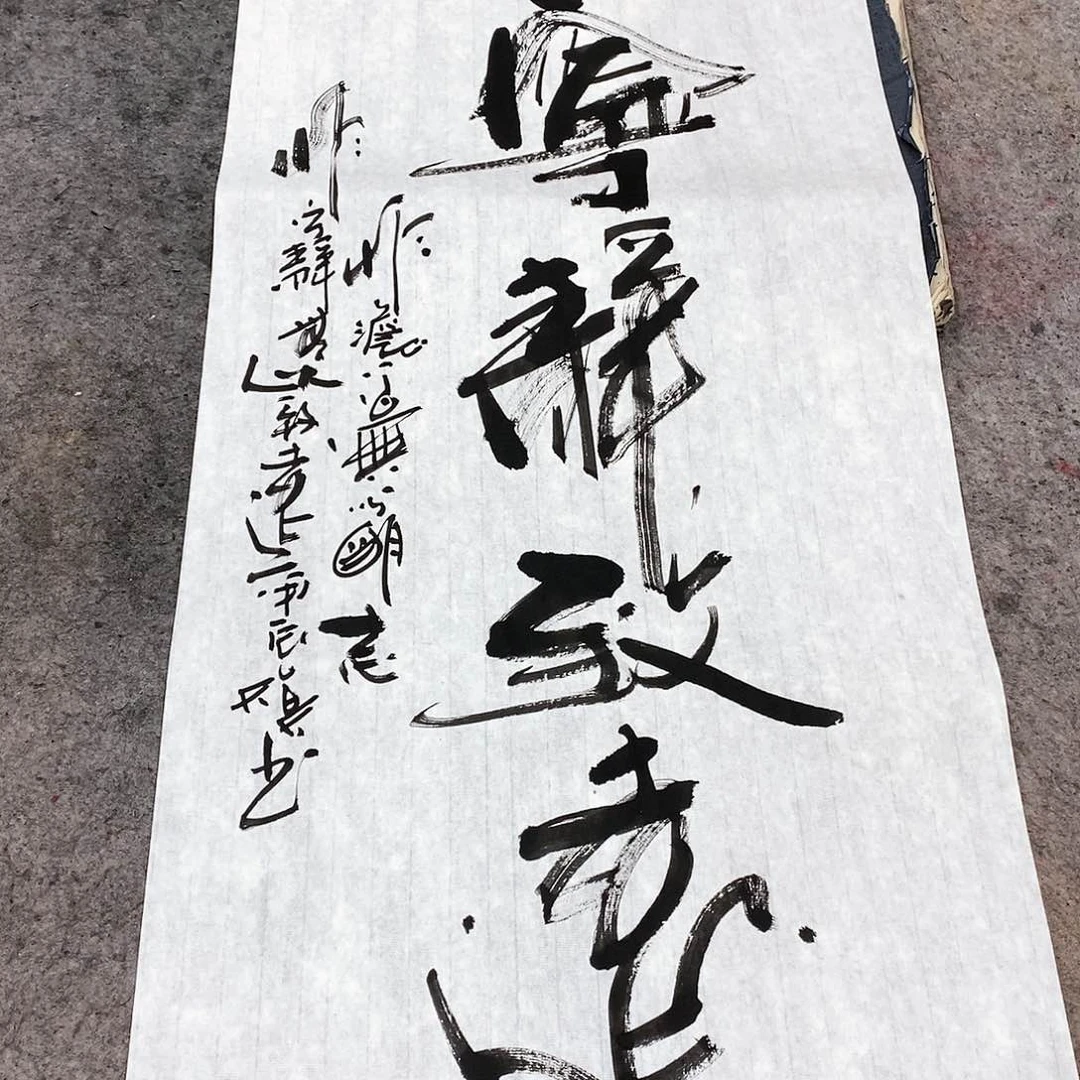 寧靜致遠
非澹泊無以朙志
非寧靜無以致遠甲辰書